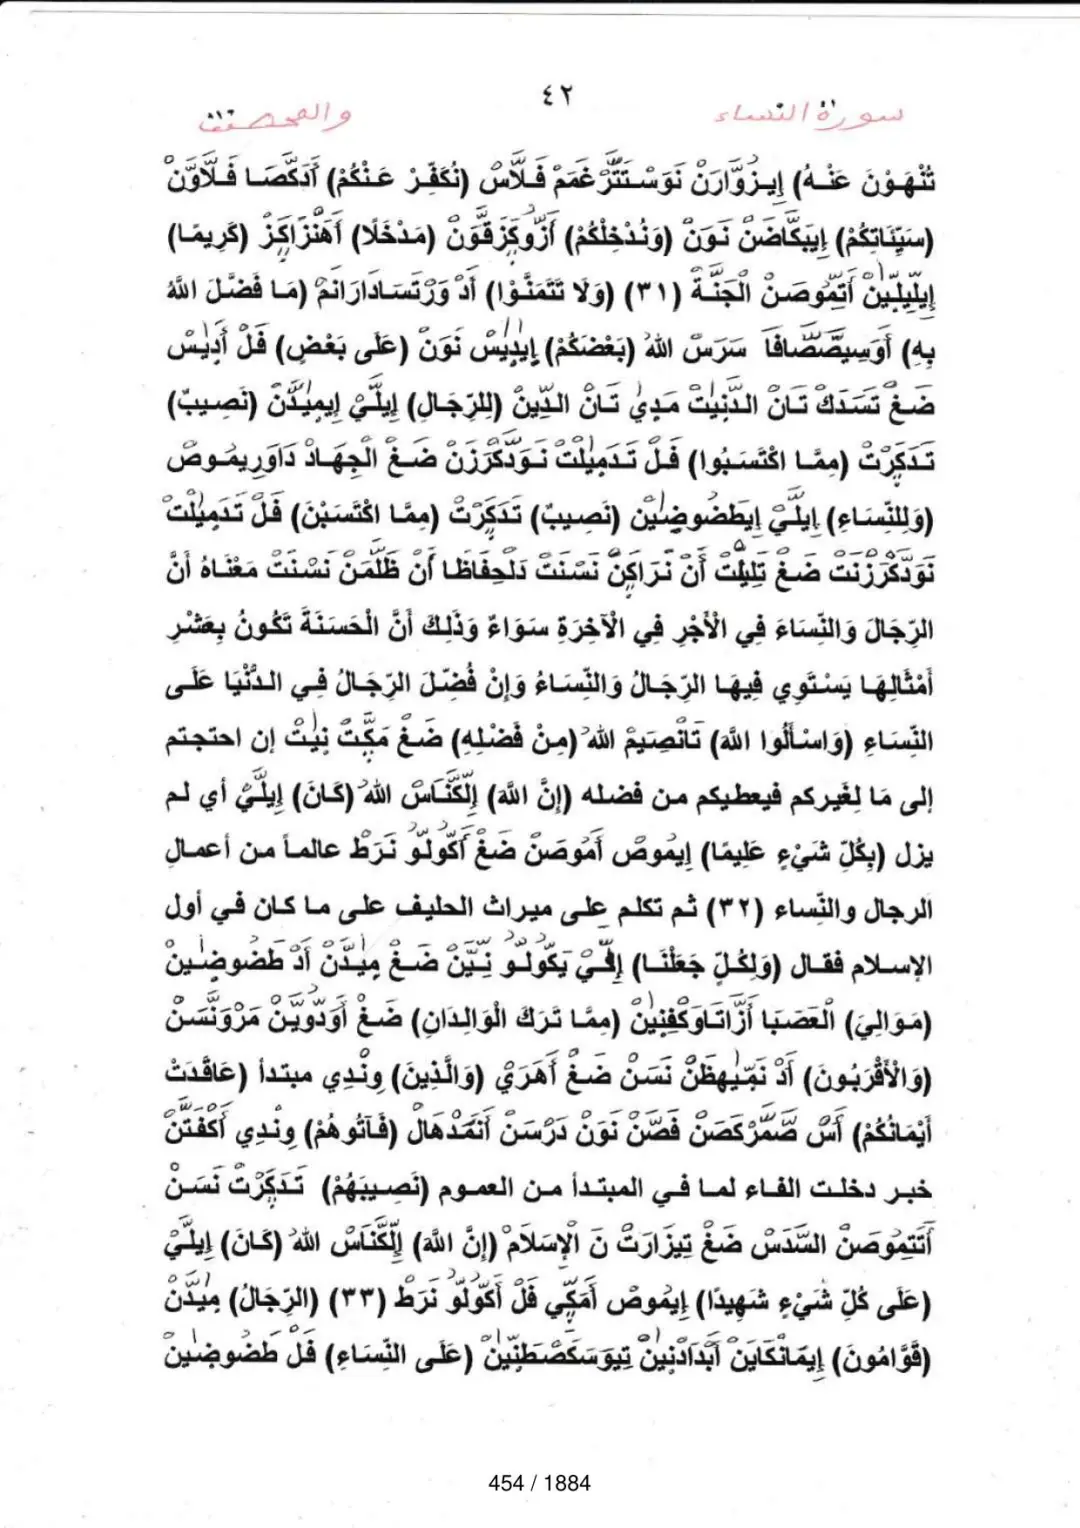 ٤٢
سورة النساء والمحصنت
تُنْهَوْنَ عَنْهُ) إِيزْوَّارَنْ نَوَسْتَتَّرْغَمَمْ فَلَّاسْ (نُكَفِّرْ عَنْكُمْ) أَدَكَّصَا فَلَّاوَّنْ
(سَيِّئَاتِكُمْ) إِيبَكَّاضَنْ نَوَنْ (وَنُدْخِلْكُمْ) أَزُّوكَزَقَّوَنْ (مَدْخَلًا) أَهَنْزَاكَزْ (كَرِيمًا)
إِيلِّيلِّينْ أَتِمُّوصَنْ الْجَنَّةْ (٣١) (وَلَا تَتَمَنَّوْا) أَدْ وَرْتَسَادَارَانَمْ (مَا فَضَّلَ اللهُ
بِهِ) أَوَسِيصَّصَّافَا سَرَسْ اللهُ (بَعْضَكُمْ) إِيدِيسْ نَوَنْ (عَلَى بَعْضٍ) فَلْ أَدِيسْ
ضَغْ تَسَدَكْ تَانْ الدَّنِيتْ مَدِيْ تَانْ الدِّينْ (لِلرِّجَالِ) إِيلَّيْ إِيمِيدَّنْ (نَصِيبٌ)
تَدَكِرْتْ (مِمَّا اكْتَسَبُوا) فَلْ تَدَمِيلْتْ نَوَدَّكَرَزَنْ ضَغْ الْجِهَادْ دَاوَرِيمُوصْ
(وَلِلنِّسَاءِ) إِيلَّيْ إِيطَضُوضِينْ (نَصِيبٌ) تَدَكِرْتْ (مِمَّا اكْتَسَبْنَ) فَلْ تَدَمِيلْتْ
نَوَدَّكَرَزْنَتْ ضَغْ تَلِيلْتْ أَنْ نَرَاكَنْ نَسْنَتْ دَلْحِفَاظَا أَنْ ظَلَّمَنْ نَسْنَتْ مَعْنَاهُ أَنَّ
الرِّجَالَ وَالنِّسَاءَ فِي الْأَجْرِ فِي الْآخِرَةِ سَوَاءٌ وَذَلِكَ أَنَّ الْحَسَنَةَ تَكُونُ بِعَشْرِ
أَمْثَالِهَا يَسْتَوِي فِيهَا الرِّجَالُ وَالنِّسَاءُ وَإِنْ فُضِّلَ الرِّجَالُ فِي الدُّنْيَا عَلَى
النِّسَاءِ (وَاسْأَلُوا اللَّهَ) تَانْصِيَمْ اللهُ (مِنْ فَضْلِهِ) ضَغْ مَكَّتْ نِيتْ إن احتجتم
إلى مَا لِغَيركم فيعطيكم من فضله (إِنَّ اللَّهَ) إِلَّكْنَاسْ اللهُ (كَانَ) إِيلَّيْ أي لم
يزل (بِكُلِّ شَيْءٍ عَلِيمًا) إِيمُوصْ أَمُوصَنْ ضَغْ أَكُولُو نَرَطْ عالماً من أعمال
الرجال والنّساء (٣٢) ثم تكلم على ميراث الحليف على ما كان في أول
الإسلام فقال (وَلِكُلٍّ جَعَلْنَا) إِقَّيْ يَكُولُو نِيَّنْ ضَغْ مِيدَّنْ أَدْ طَضُوضِينْ
(مَوَالِيَ) الْعَصَبَا أَزَّاتَاوَكْفِنِينْ (مِمَّا تَرَكَ الْوَالِدَانِ) ضَغْ أَوَدُّويَّنْ مَرْوَنَّسَنْ
(وَالْأَقْرَبُونَ) أَدْ نَمِّيهَظَنْ نَسَنْ ضَغْ أَهَرَيْ (وَالَّذِينَ) وِنْدِي مبتدأ (عَاقَدَتْ
أَيْمَانُكُمْ) أَسْ صَّمَّرْكَصَنْ فَصَّنْ نَوَنْ دَرْسَنْ أَنَمَدْهَالْ (فَآتُوهُمْ) وِنْدِي أَكْفَتَنْ
خبر دخلت الفاء لما في المبتدأ من العموم (نَصِيبَهُمْ) تَدَكِرْتْ نَسَنْ
أَتَتِمُوصَنْ السَّدَسْ ضَغْ تِيزَارَتْ نَ الْإِسْلَامْ (إِنَّ اللَّهَ) إِلَّكْنَاسْ اللهُ (كَانَ) إِيلَّيْ
(عَلَى كُلِّ شَيْءٍ شَهِيدًا) إِيمُوصْ أَمَكِّي فَلْ أَكُولُو نَرَطْ (٣٣) (الرِّجَالُ) مِيدَّنْ
(قَوَّامُونَ) إِيمَانَكَايَنْ أَبَدَادْنِينْ تِيوَسَكَصْطَنِّينْ (عَلَى النِّسَاءِ) فَلْ طَضُوضِينْ
454 / 1884